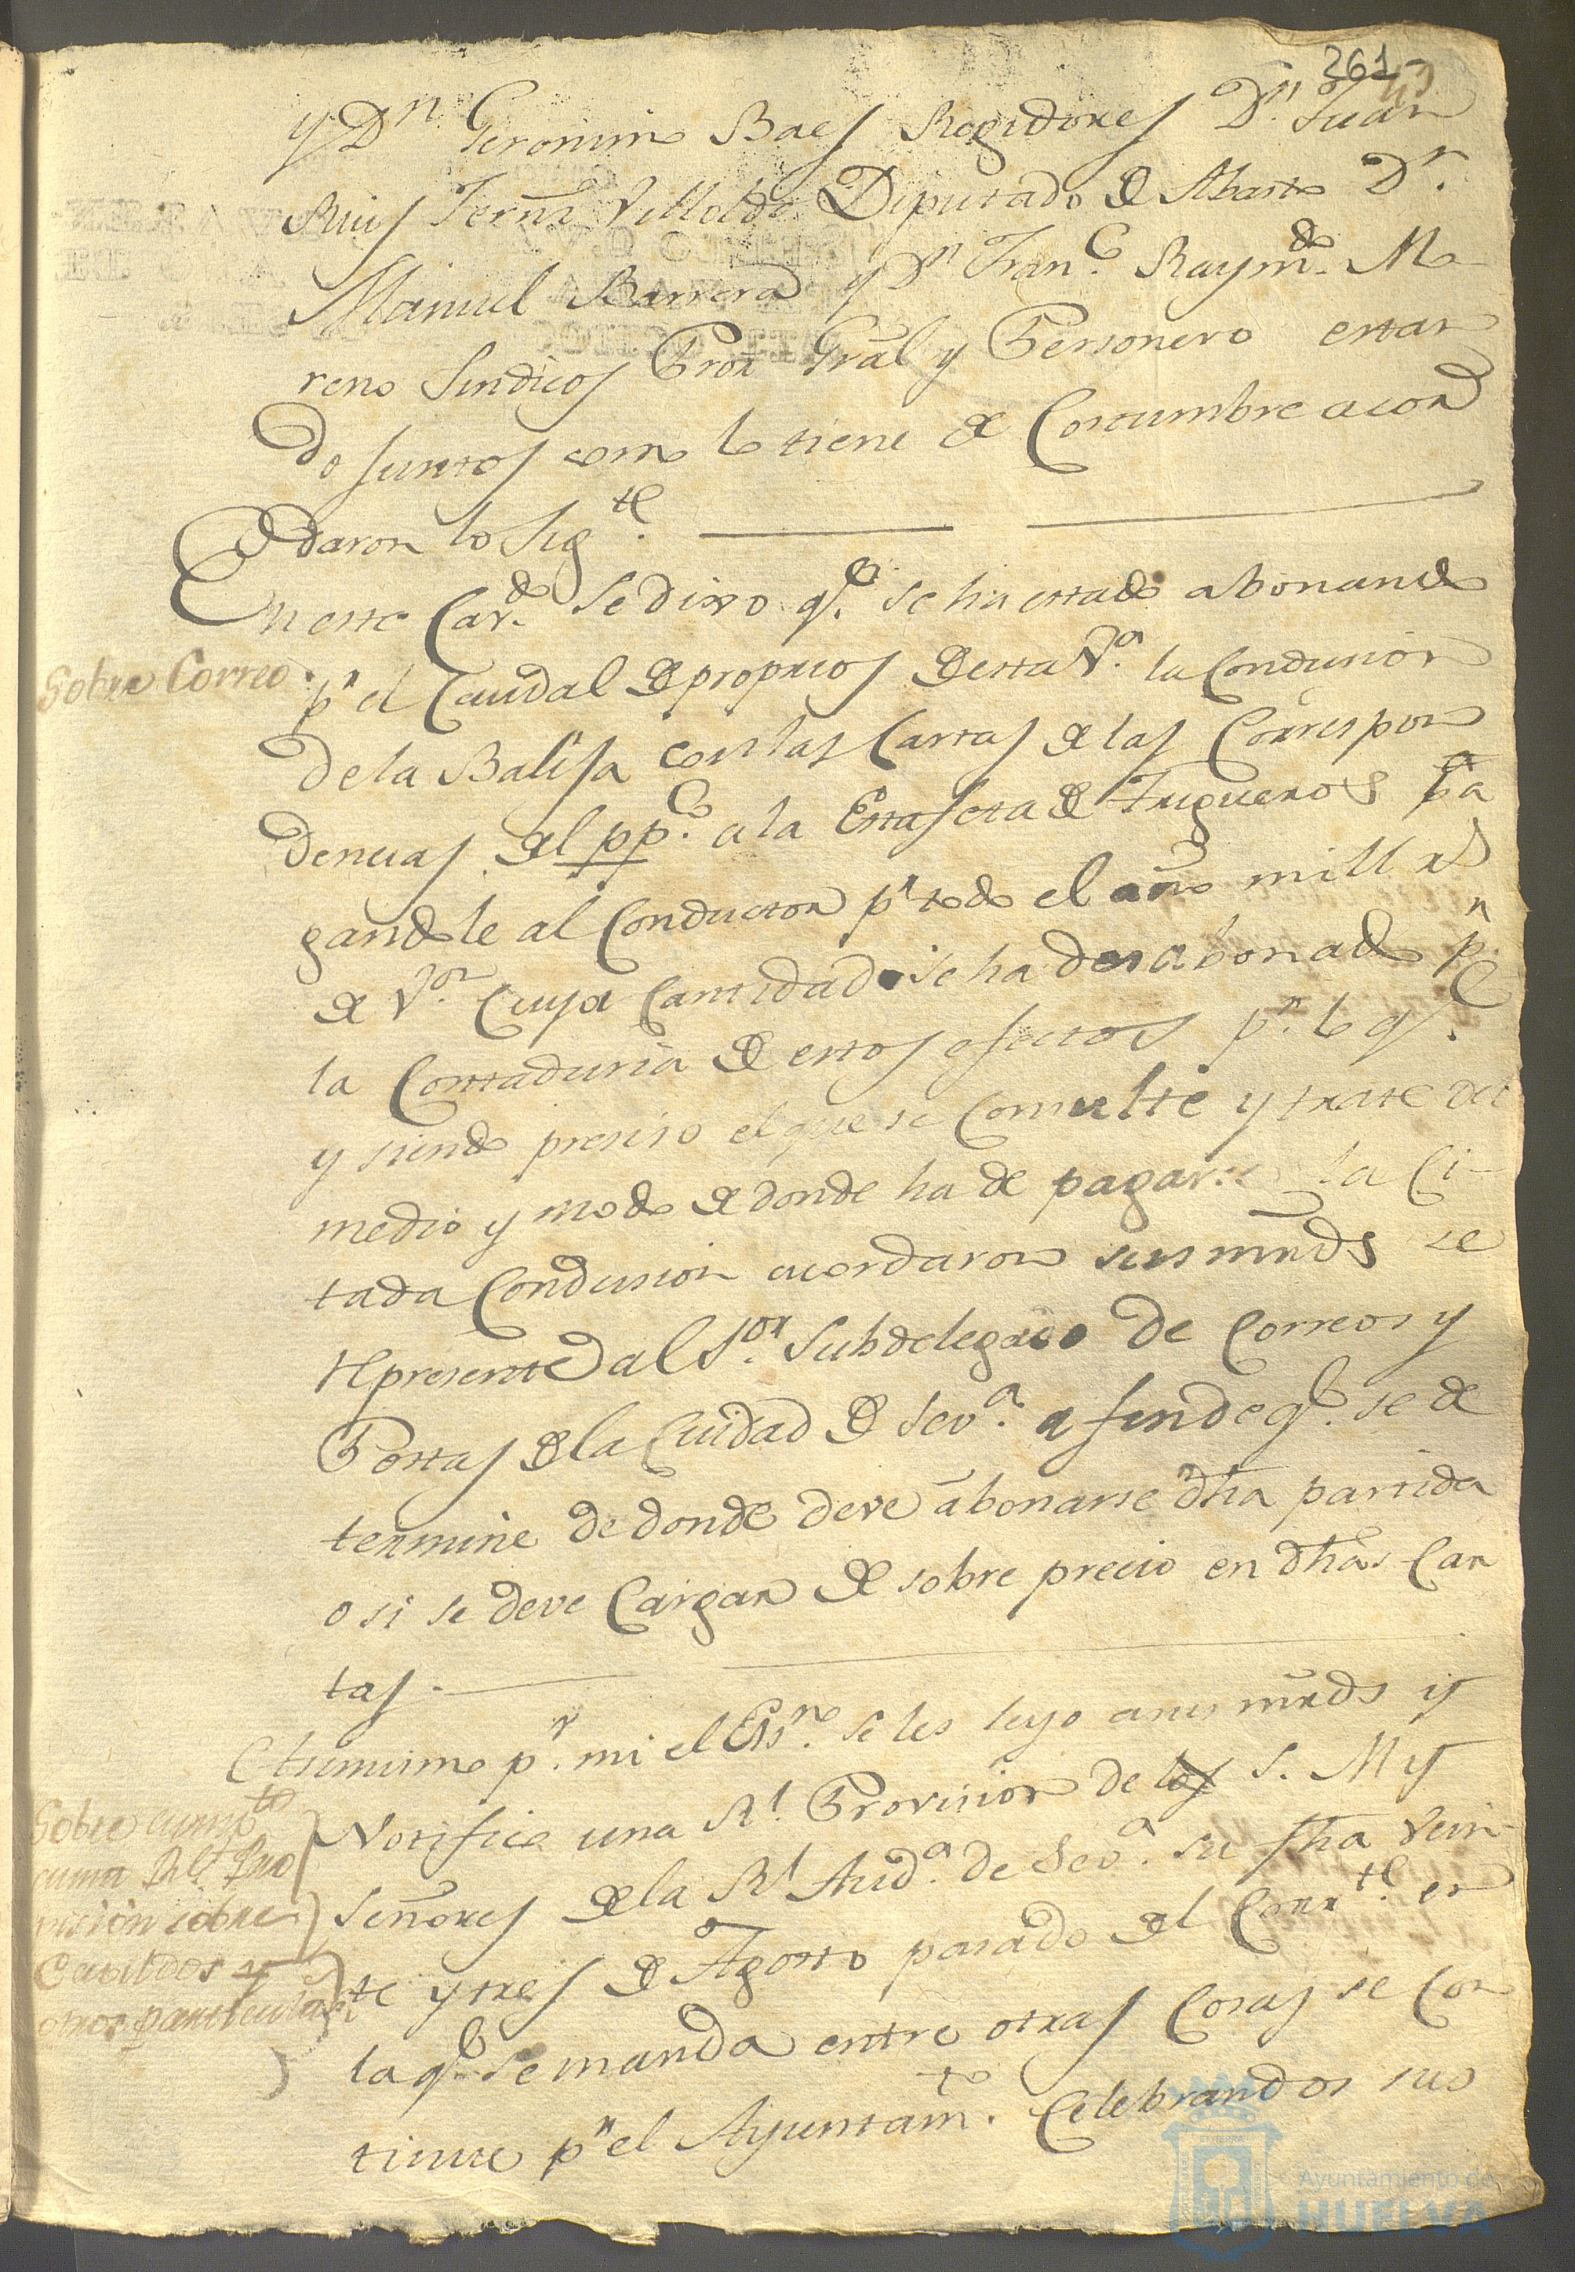 361
y Dn. Geronimo Baes Regidores Dn. Juan
Ruis Fernz. Villoldo Diputado de Abasto Dn.
Manuel Barrera y Dn Franco. Raymdo. Mo-
reno Sindicos Pror Gral y Personero estan
do juntos como lo tiene de Costumbre acor
daron lo sigte.
En este Cavdo. se dixo qe. se ha estado abonando
Sobre Correo.
pr el Caudal de propios de esta Va. la Condusion
de la Balija con las Cartas de las Correspon
dencias del ppco. a la Estafeta de Trigueros pa
gandole al Conductor pr todo el año mill rs
de Von. Cuya Cantidad se ha desabonado pr.
la Contaduria de estos efectos pr. lo qe.
y siendo presiso el que se Consulte y trate del
medio y modo de donde ha de pagarse la Ci-
tada Condusion acordaron sus mrds se
represente al Sor. Subdelegado de Correos y
Postas de la Ciudad de Seva. a fin de qe. se de
termine de donde deve abonarse dha partida
o si se deve Cargar de sobre precio en dhas Car
tas.
Otrimismo pr. mi el Essno. se les leyo a sus mrds y
Notifico una Rl. Provision de los S. M y
Sobre cumpto
Señores de la Rl Auda. de Seva. su fha Vein-
cumn Rl Pro
vision sobre
te y tres de Agosto pasado del Corrte. en
Cavildos y
otros particulars
la qe. se manda entre otras Cosas se Con
tinue pr el Ayuntamto. Celebrandos sus
Ayuntamiento de
HUELVA